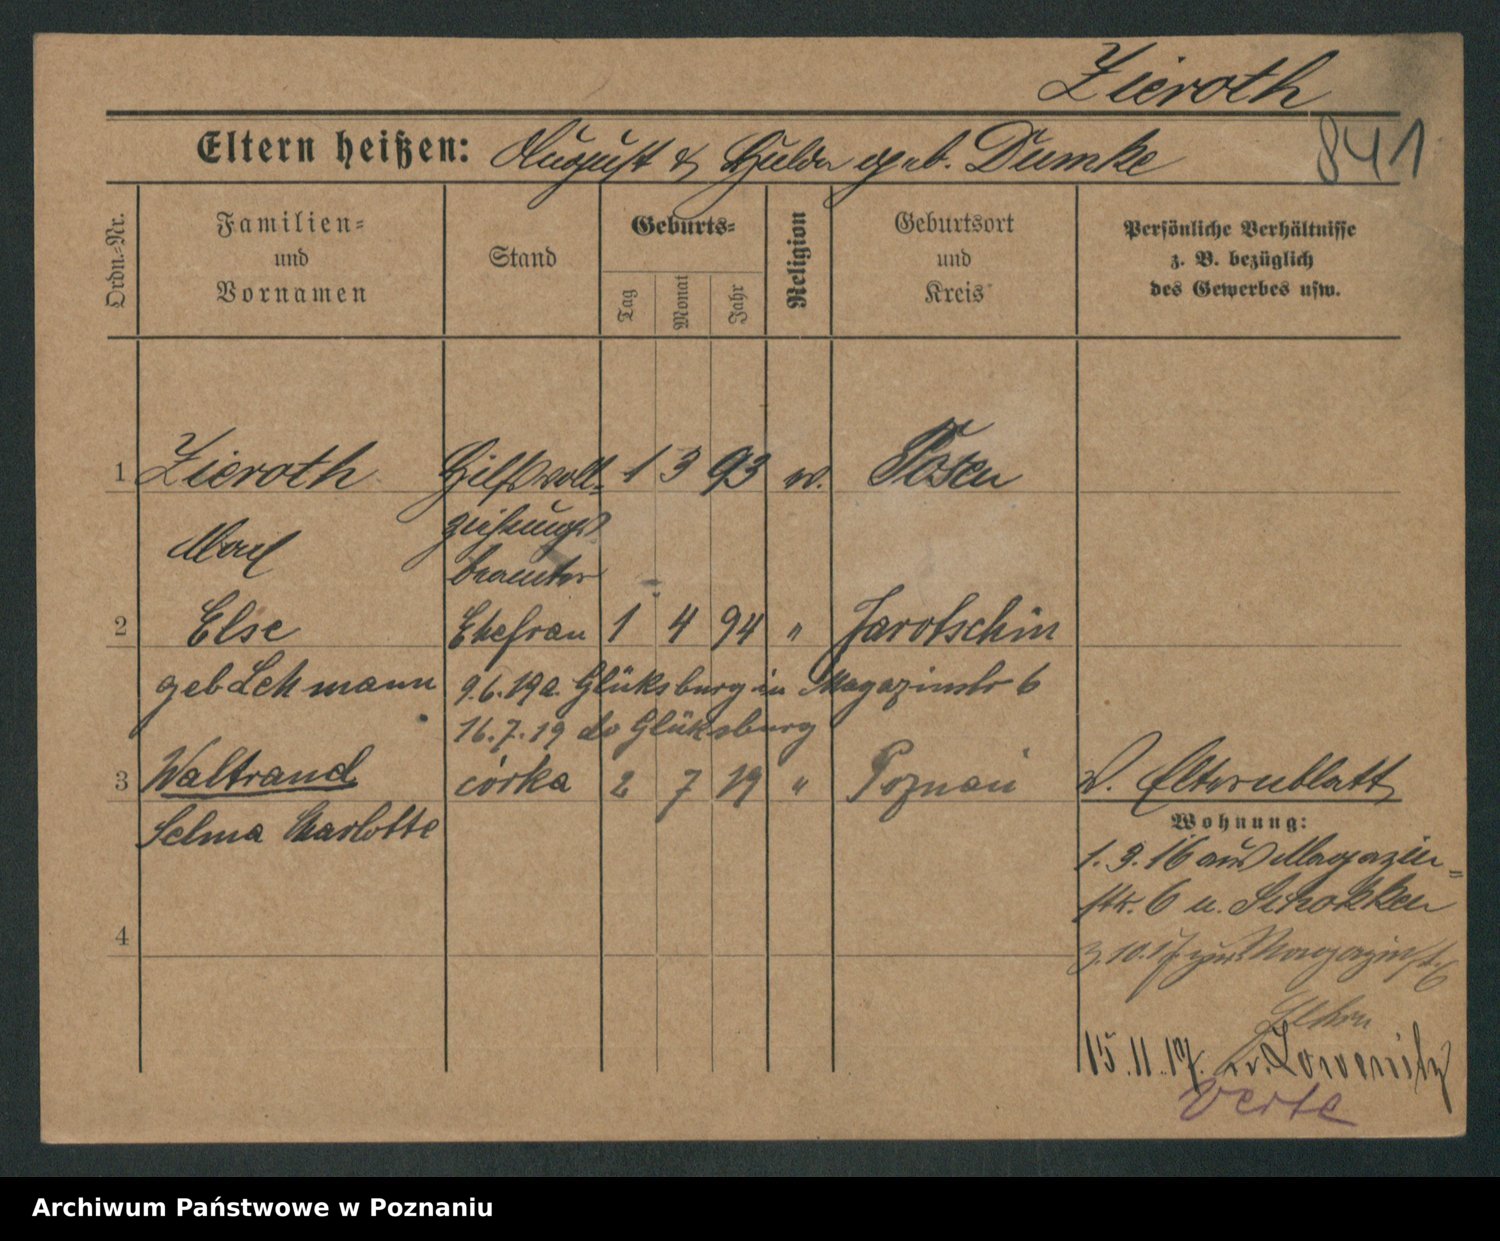 Zieroth
841
Eltern heißen: August & Hulda geb. Dumke
Ordn.-Nr.
Familien-
und
Vornamen
Stand
Geburts-
Tag
Monat
Jahr
Religion
Geburtsort
und
Kreis
Persönliche Verhältnisse
z. B. bezüglich
des Gewerbes usw.
1 Zieroth Hilfsvoll- 1 3 93 Posen
ziehungs
Max beamter
2 Else Ehefrau 1 4 94 " Jarotschin
geb Lehmann 9.6.19 a. Glüksburg in Magazinstr 6
16.7.19 do Glüksburg
3 Waltraud córka 2 7 19 " Poznań
Selma Charlotte
4
Elternblatt
Wohnung:
1.3.16 aus Magazin-
str. 6 n. Schokken
3.10.17 Magazinst. 6
Eltern
15.11.17. Lowenitz
verte
Archiwum Państwowe w Poznaniu